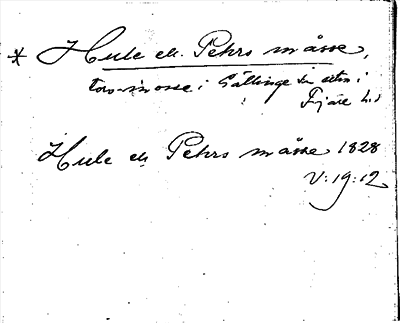 * Hule ell. Pehrs måsse,
torvmosse i Gällinge sn
Fjäre h:d
Hule ell. Pehrs måsse 1828
V:19:12